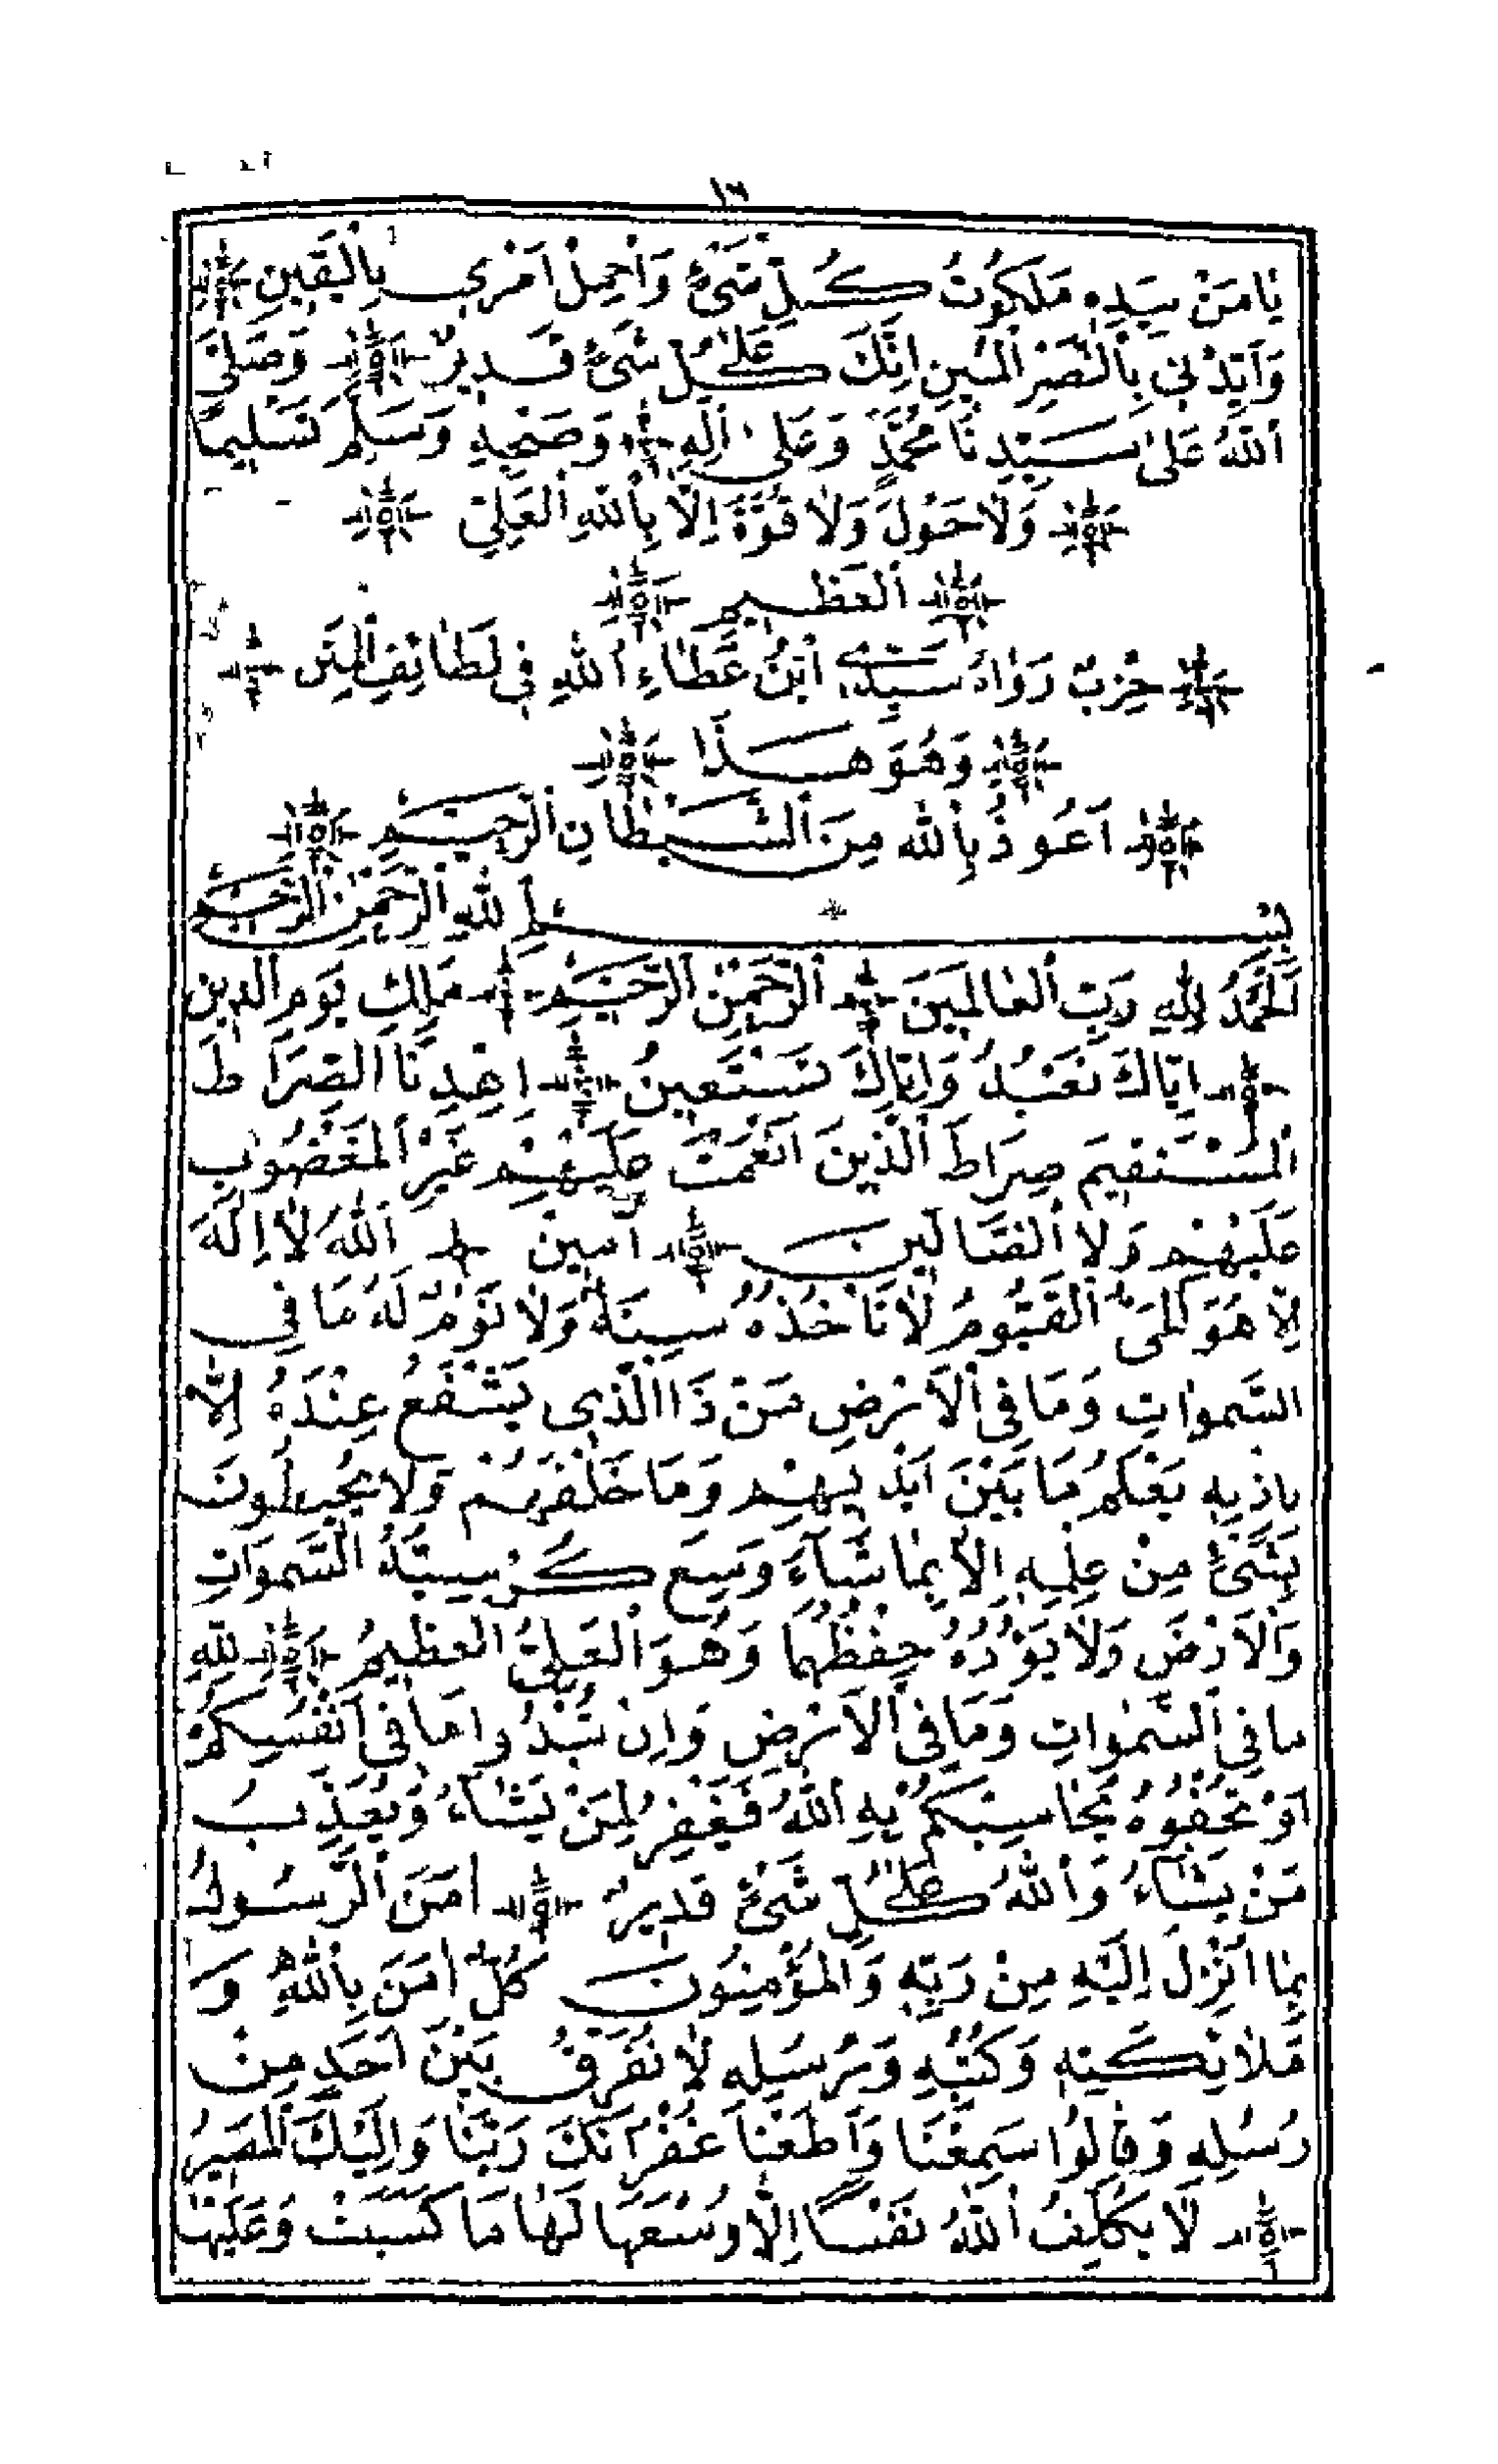 ١٦
يَا مَنْ بِيَدِهِ مَلَكُوتُ كُلِّ شَيْءٍ وَاَحْمِلْ اَمْرِي بِالْيَقِينِ
وَاَيِّدْنِي بِالنَّصْرِ الْمُبِينِ اِنَّكَ عَلٰى كُلِّ شَيْءٍ قَدِيرٌ وَصَلَّى
اللّٰهُ عَلٰى سَيِّدِنَا مُحَمَّدٍ وَعَلٰى اٰلِهِ وَصَحْبِهِ وَسَلَّمَ تَسْلِيمًا
وَلَا حَوْلَ وَلَا قُوَّةَ اِلَّا بِاللّٰهِ الْعَلِيِّ
الْعَظِيمِ
حِزْبٌ رَوَاهُ سَيِّدِي ابْنُ عَطَاءِ اللّٰهِ فِي لَطَائِفِ الْمِنَنِ
وَهُوَ هَذَا
اَعُوذُ بِاللّٰهِ مِنَ الشَّيْطَانِ الرَّجِيمِ
بِسْمِ اللّٰهِ الرَّحْمٰنِ الرَّحِيمِ
اَلْحَمْدُ لِلّٰهِ رَبِّ الْعَالَمِينَ اَلرَّحْمٰنِ الرَّحِيمِ مَلِكِ يَوْمِ الدِّينِ
اِيَّاكَ نَعْبُدُ وَاِيَّاكَ نَسْتَعِينُ اِهْدِنَا الصِّرَاطَ
الْمُسْتَقِيمَ صِرَاطَ الَّذِينَ اَنْعَمْتَ عَلَيْهِمْ غَيْرِ الْمَغْضُوبِ
عَلَيْهِمْ وَلَا الضَّالِّينَ اٰمِينَ اَللّٰهُ لَا اِلٰهَ
اِلَّا هُوَ الْحَيُّ الْقَيُّومُ لَا تَأْخُذُهُ سِنَةٌ وَلَا نَوْمٌ لَهُ مَا فِي
السَّمٰوَاتِ وَمَا فِي الْاَرْضِ مَنْ ذَا الَّذِي يَشْفَعُ عِنْدَهُ اِلَّا
بِاِذْنِهِ يَعْلَمُ مَا بَيْنَ اَيْدِيهِمْ وَمَا خَلْفَهُمْ وَلَا يُحِيطُونَ
بِشَيْءٍ مِنْ عِلْمِهِ اِلَّا بِمَا شَاءَ وَسِعَ كُرْسِيُّهُ السَّمٰوَاتِ
وَالْاَرْضَ وَلَا يَؤُدُهُ حِفْظُهُمَا وَهُوَ الْعَلِيُّ الْعَظِيمُ لِلّٰهِ
مَا فِي السَّمٰوَاتِ وَمَا فِي الْاَرْضِ وَاِنْ تُبْدُوا مَا فِي اَنْفُسِكُمْ
اَوْ تُخْفُوهُ يُحَاسِبْكُمْ بِهِ اللّٰهُ فَيَغْفِرُ لِمَنْ يَشَاءُ وَيُعَذِّبُ
مَنْ يَشَاءُ وَاللّٰهُ عَلٰى كُلِّ شَيْءٍ قَدِيرٌ اٰمَنَ الرَّسُولُ
بِمَا اُنْزِلَ اِلَيْهِ مِنْ رَبِّهِ وَالْمُؤْمِنُونَ كُلٌّ اٰمَنَ بِاللّٰهِ وَ
مَلَائِكَتِهِ وَكُتُبِهِ وَرُسُلِهِ لَا نُفَرِّقُ بَيْنَ اَحَدٍ مِنْ
رُسُلِهِ وَقَالُوا سَمِعْنَا وَاَطَعْنَا غُفْرَانَكَ رَبَّنَا وَاِلَيْكَ الْمَصِيرُ
لَا يُكَلِّفُ اللّٰهُ نَفْسًا اِلَّا وُسْعَهَا لَهَا مَا كَسَبَتْ وَعَلَيْهَا